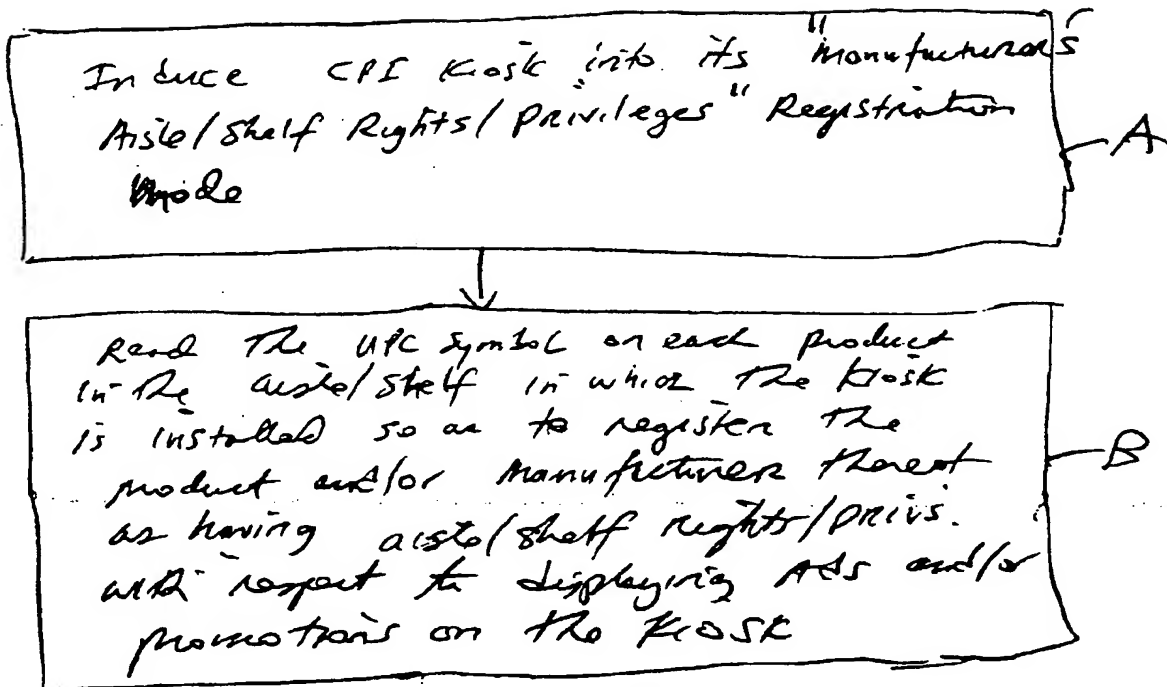 Induce CPI Kiosk into its "Manufacturer's
Aisle/Shelf Rights/Privileges" Registration
Mode
A
Read the UPC symbol on each product
in the aisle/shelf in which the kiosk
is installed so as to register the
product and/or Manufacturer thereof
as having aisle/shelf rights/privs.
with respect to displaying Ads and/or
promotions on the Kiosk
B